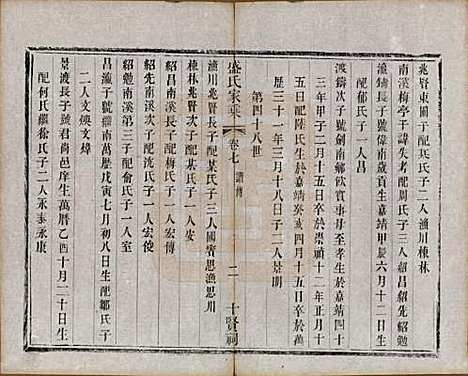 兆賢東園子配某氏子二人漁川棟林
南溪梅亭子諱失考配周氏子三人紹昌紹先紹勉
濟鐄長子號偉南歲貢生嘉靖十年六月十二日生
配郁氏子一人昌
渡鑄次子號劍南鄉飲賓事母至孝生於嘉靖四十
三年甲子二月十五日卒於崇禎十二年正月十
五日配陸氏生於嘉靖癸亥四月十五日卒於萬
歷三十一年三月十八日子二人景明
第四十八世
盛氏家乘 卷七 譜傳 二 十賢祠
漁川兆賢長子配某氏子三人國賓思漁思川
棟林兆賢次子配某氏子一人安
紹昌南溪長子配梅氏子一人宏傳
紹先南溪次子配某氏子一人宏使
紹勉南溪第三子配俞氏子一人室
昌濟子號繼南萬曆戊寅七月初八日生配鄒氏子
二人文煥文煒
景渡長子號君尚邑庠生萬曆乙酉十月二十日生
配何氏繼徐氏子二人永泰永康